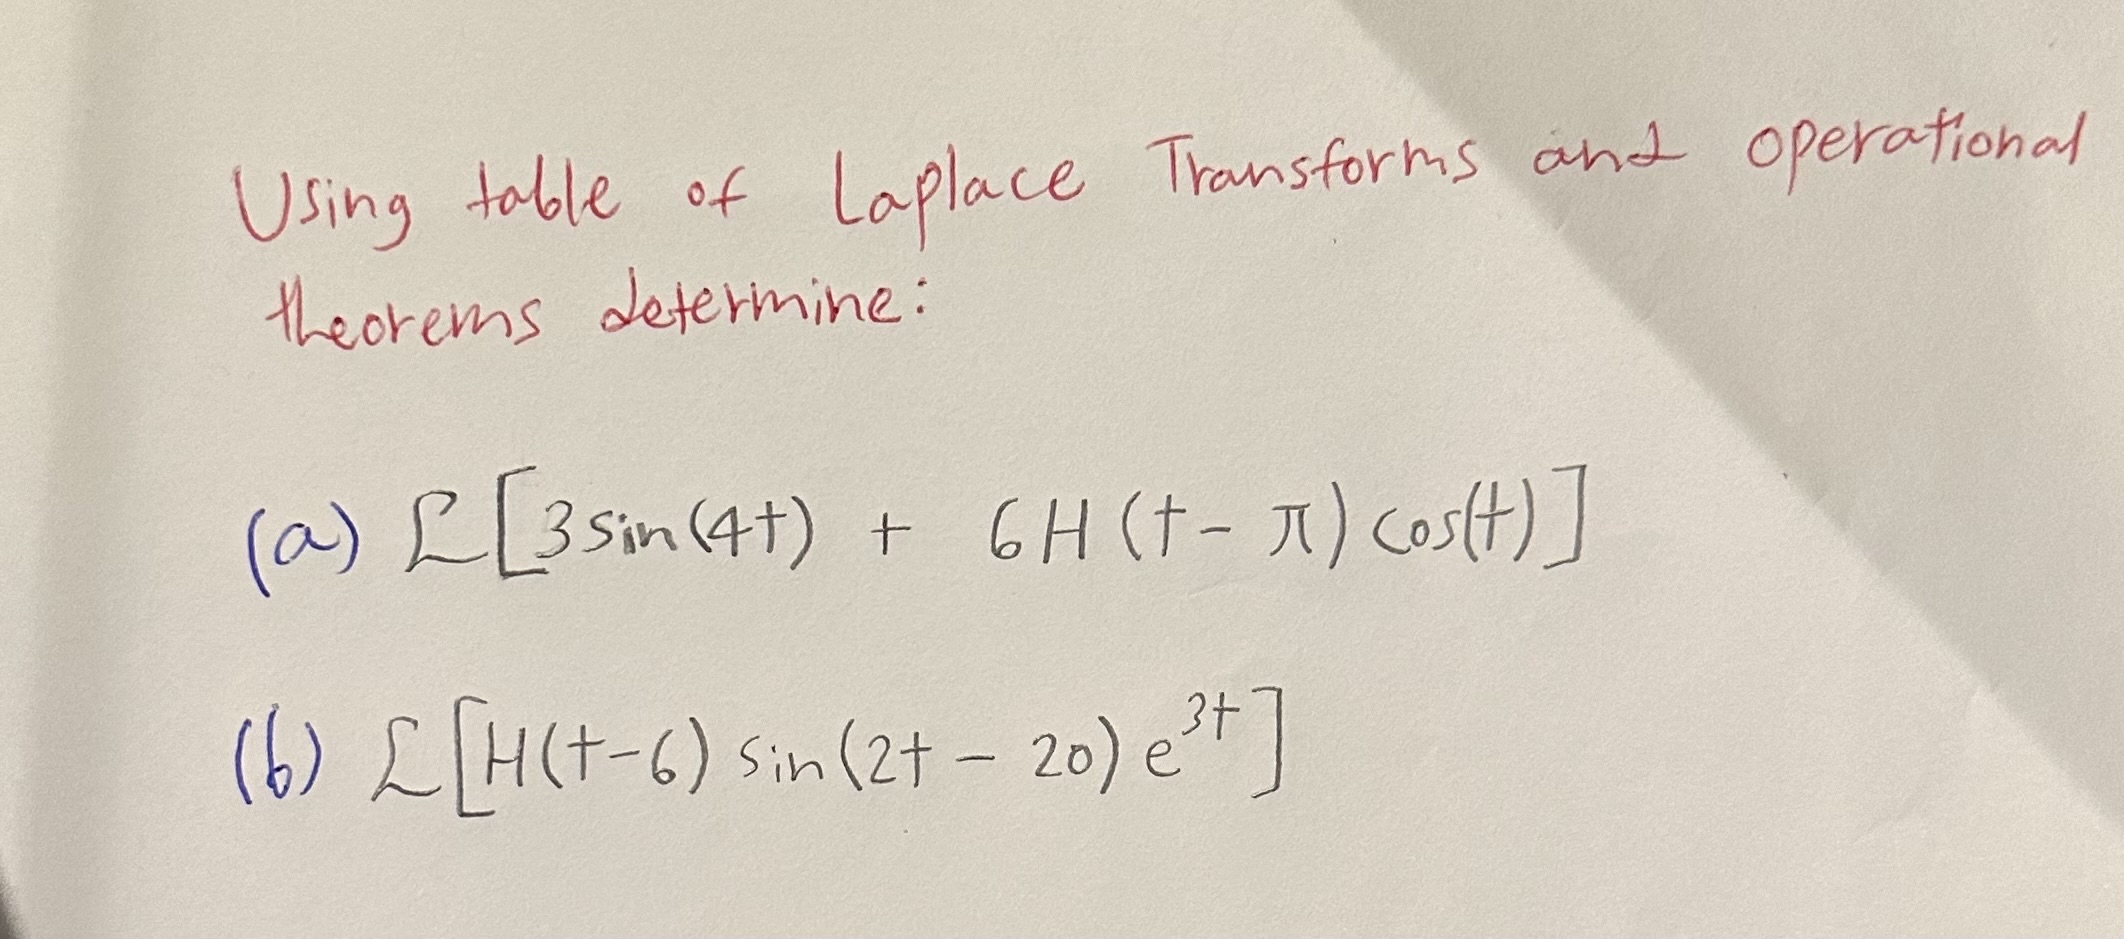 Using table of Laplace Transforms and operational
theorems determine:
(a) ℒ[3sin(4t) + 6H(t - π) cos(t)]
(b) ℒ[H(t-6) sin(2t - 20) e^{3t}]